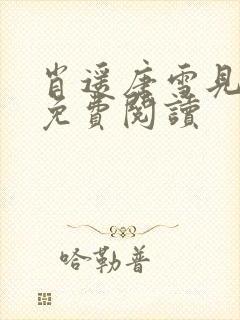 肖遥唐雪見
免費閱讀
哈勒普